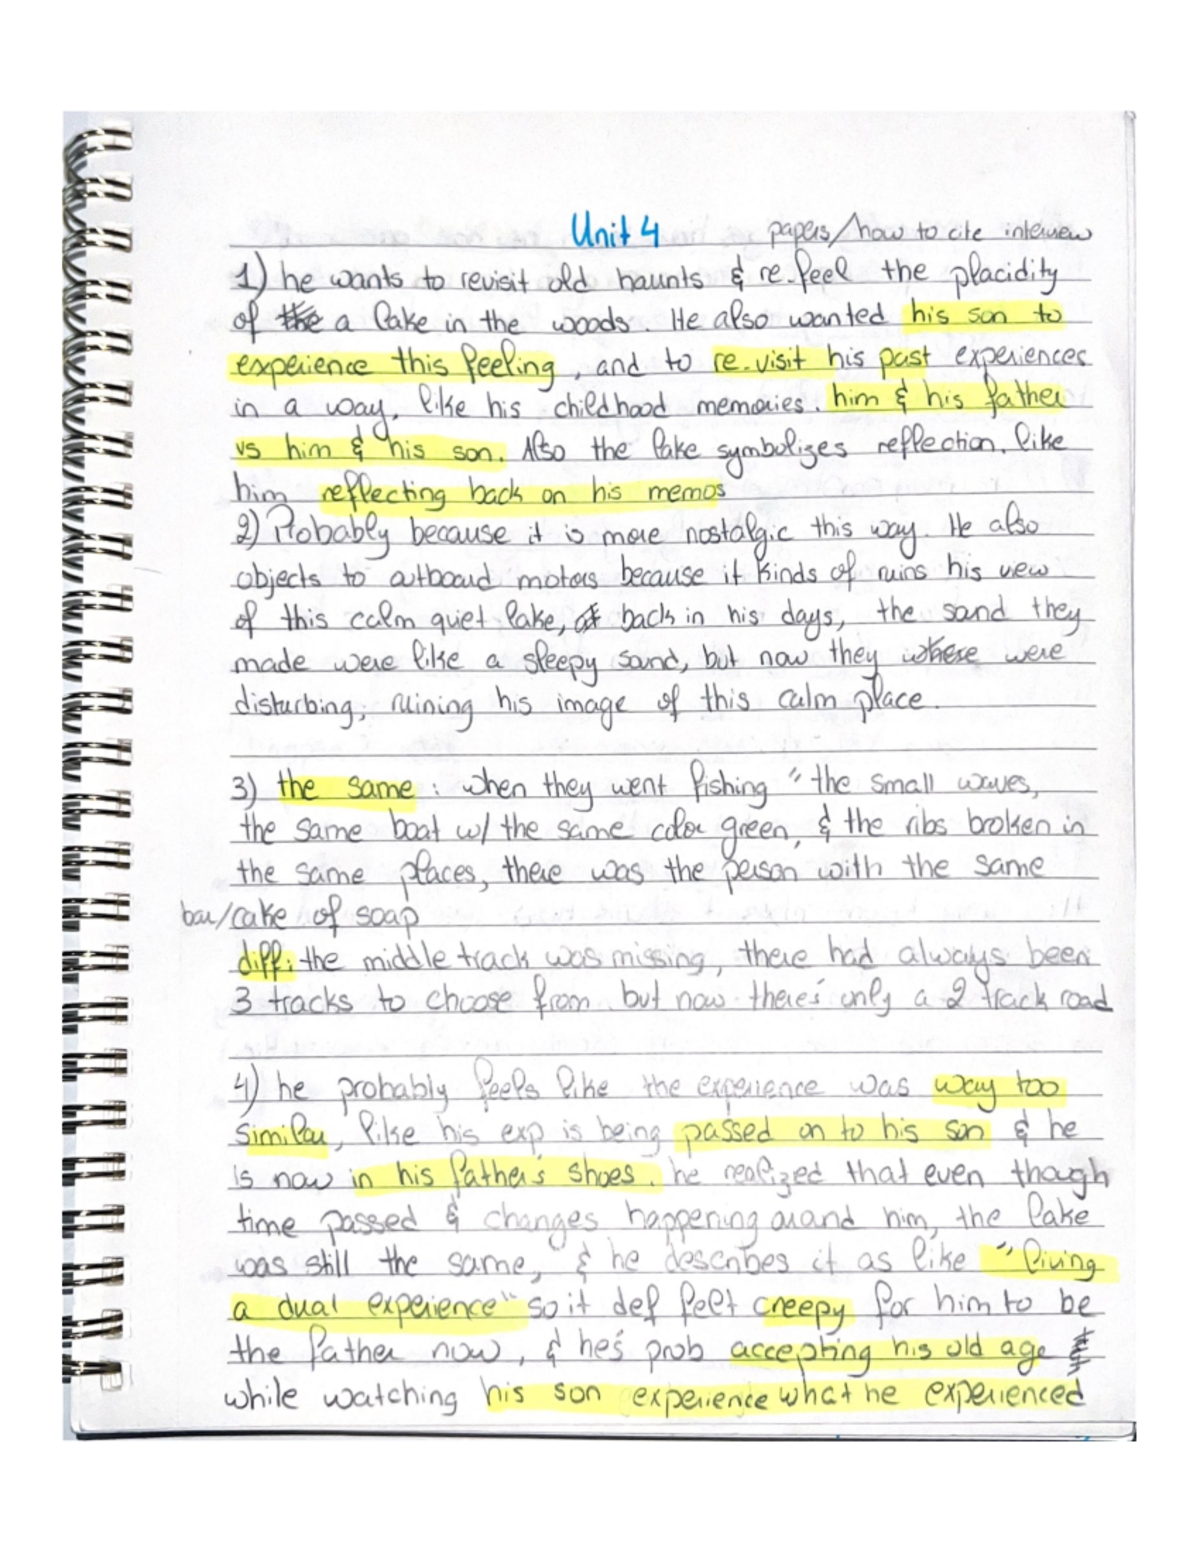 Unit 4 papers/how to cite interview
1) he wants to revisit old haunts & re-feel the placidity
of the a lake in the woods. He also wanted his son to
experience this feeling, and to re-visit his past experiences
in a way, like his childhood memories. him & his father
vs him & his son. Also the lake symbolizes reflection. like
him reflecting back on his memos
2) Probably because it is more nostalgic this way. He also
objects to outboard motors because it kinds of ruins his view
of this calm quiet lake, back in his days, the sand they
made were like a sleepy sound, but now they where were
disturbing, ruining his image of this calm place.
3) the same: when they went fishing "the small waves,
the same boat w/ the same color green, & the ribs broken in
the same places, there was the person with the same
bar/cake of soap
diff: the middle track was missing, there had always been
3 tracks to choose from but now there's only a 2 track road
4) he probably feels like the experience was way too
similar, like his exp is being passed on to his son & he
is now in his father's shoes. he realized that even though
time passed & changes happening around him, the lake
was still the same, & he describes it as like "living
a dual experience" so it def felt creepy for him to be
the father now, & he's prob accepting his old age
while watching his son experience what he experienced